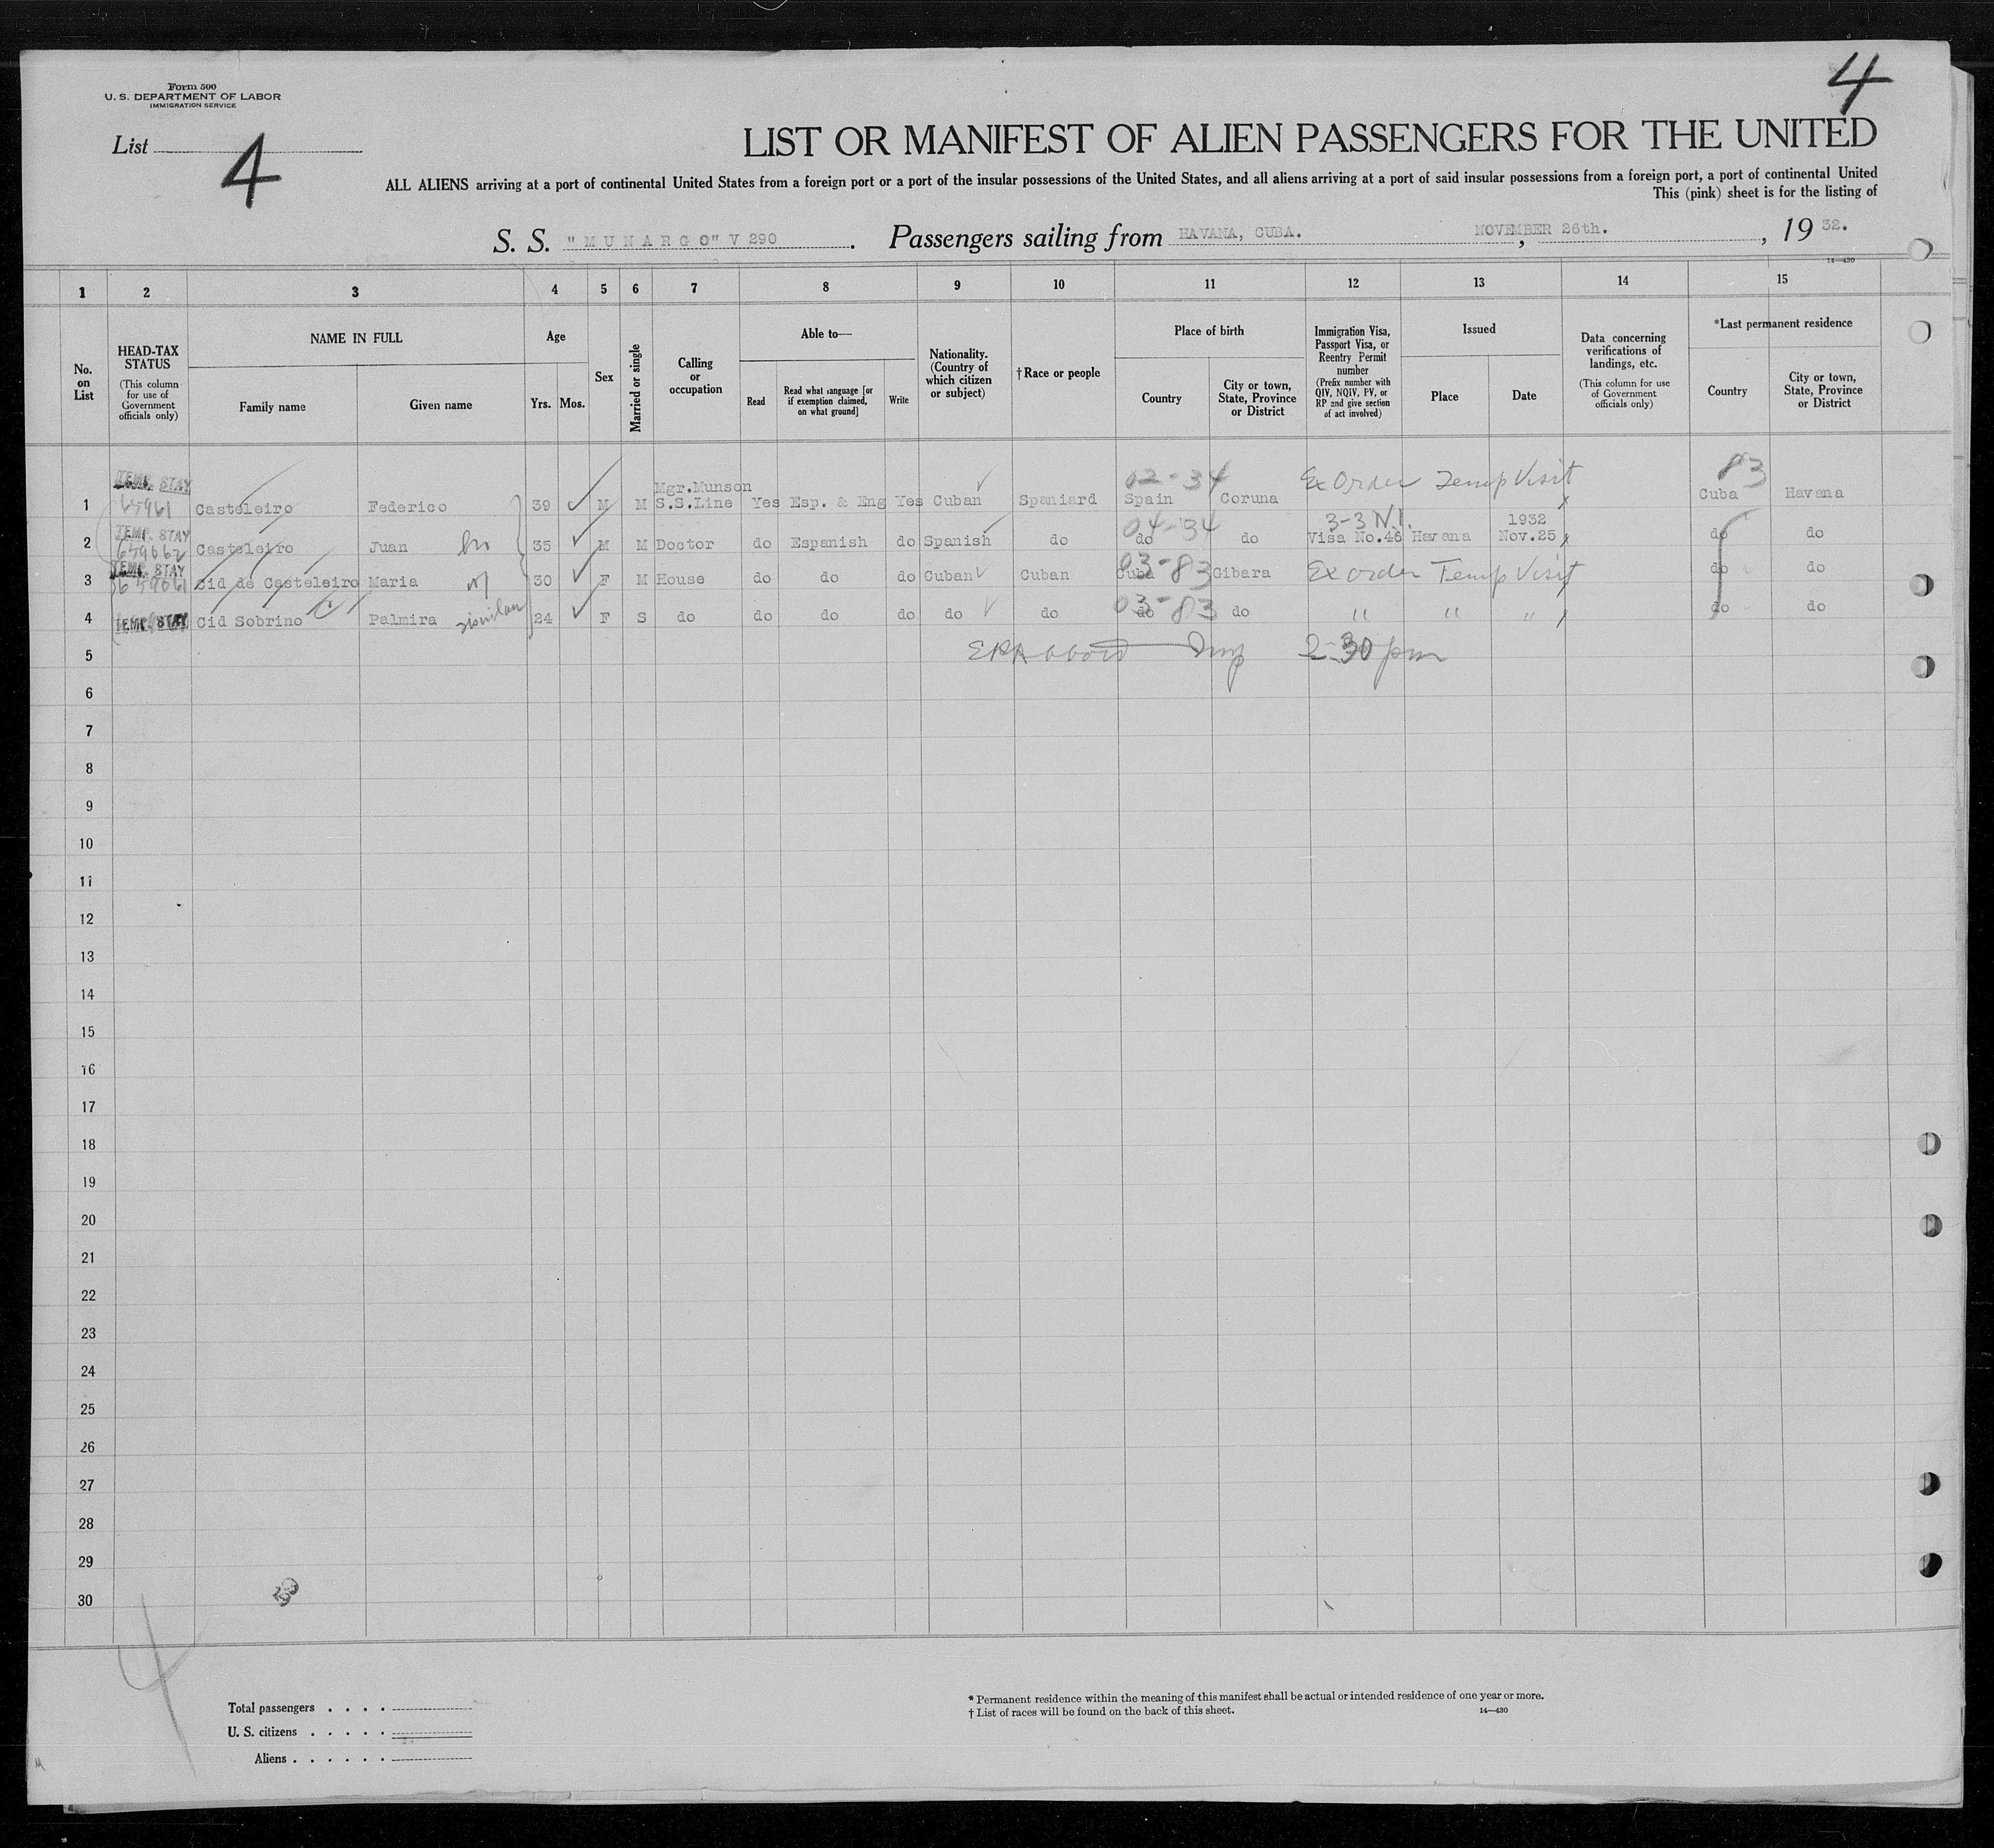 4
Form 500
U. S. DEPARTMENT OF LABOR
IMMIGRATION SERVICE
List 4
LIST OR MANIFEST OF ALIEN PASSENGERS FOR THE UNITED
ALL ALIENS arriving at a port of continental United States from a foreign port or a port of the insular possessions of the United States, and all aliens arriving at a port of said insular possessions from a foreign port, a port of continental United
This (pink) sheet is for the listing of
S. S. "MUNARGO" V 290. Passengers sailing from HAVANA, CUBA. NOVEMBER 26th., 1932.
14—430
1 2 3 4 5 6 7 8 9 10 11 12 13 14 15
No. on List
HEAD-TAX STATUS
(This column for use of Government officials only)
NAME IN FULL
Family name
Given name
Age
Yrs.
Mos.
Sex
Married or single
Calling or occupation
Able to—
Read
Read what language [or if exemption claimed, on what ground]
Write
Nationality. (Country of which citizen or subject)
†Race or people
Place of birth
Country
City or town, State, Province or District
Immigration Visa, Passport Visa, or Reentry Permit number
(Prefix number with QIV, NQIV, PV, or RP and give section of act involved)
Issued
Place
Date
Data concerning verifications of landings, etc.
(This column for use of Government officials only)
*Last permanent residence
Country
City or town, State, Province or District
TEMP. STAY 02-34 83
1 65961 Casteleiro Federico 39 M M Mgr.Munson S.S.Line Yes Esp. & Eng Yes Cuban Spaniard Spain Coruna Ex Order Temp Visit Cuba Havana
TEMP. STAY 04-34 3-3 N.I. 1932
2 659062 Casteleiro Juan 35 M M Doctor do Espanish do Spanish do do do Visa No.46 Havana Nov.25 do do
TEMP. STAY 03-83
3 659061 Cid de Casteleiro Maria 30 F M House do do do Cuban Cuban Cuba Gibara Ex Order Temp Visit do do
4 TEMP. STAY Cid Sobrino Palmira 24 F S do do do do do do do 03-83 do " " " do do
5 2-30 pm
6
7
8
9
10
11
12
13
14
15
16
17
18
19
20
21
22
23
24
25
26
27
28
29
30
4
Total passengers . . . .
U. S. citizens . . . . .
Aliens . . . . . .
* Permanent residence within the meaning of this manifest shall be actual or intended residence of one year or more.
† List of races will be found on the back of this sheet.
14—430